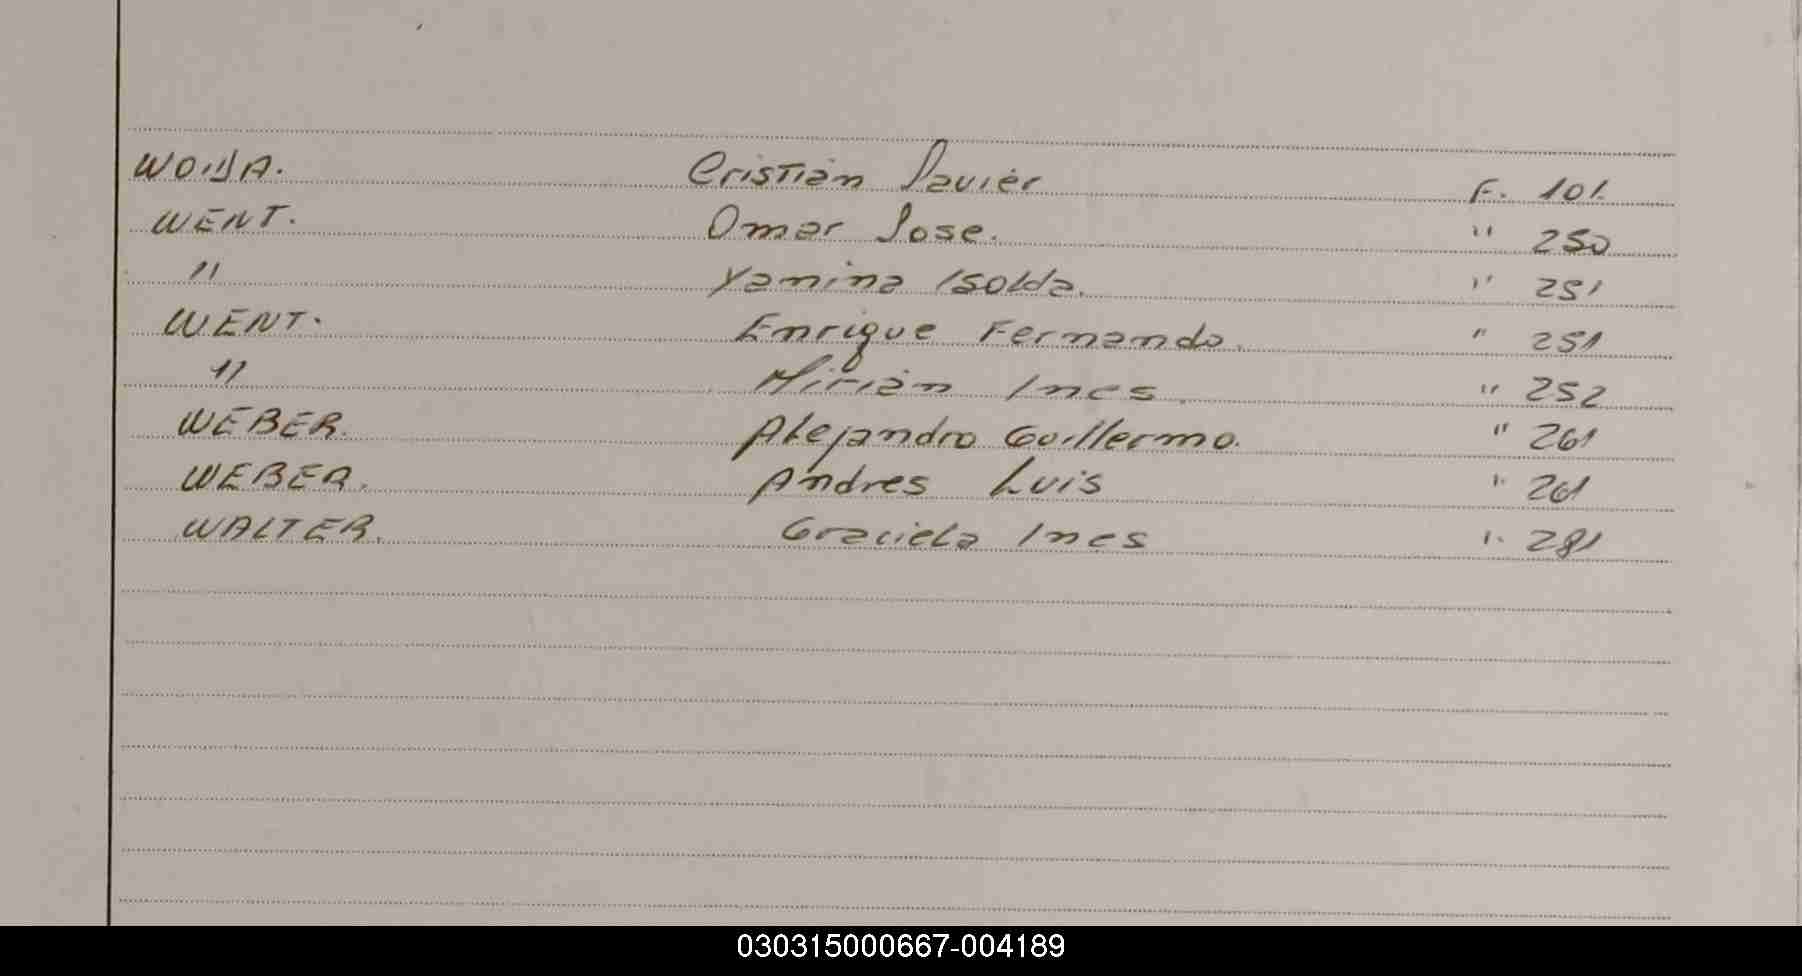 WOIJA. Cristián Javier F. 101.
WENT. Omar Jose. " 250
" Yanina Isolda. " 251
WENT. Enrique Fernando. " 251
" Mirián Ines. " 252
WEBER. Alejandro Guillermo. " 261
WEBER. Andres Luis " 261
WALTER. Graciela Ines " 281
030315000667-004189